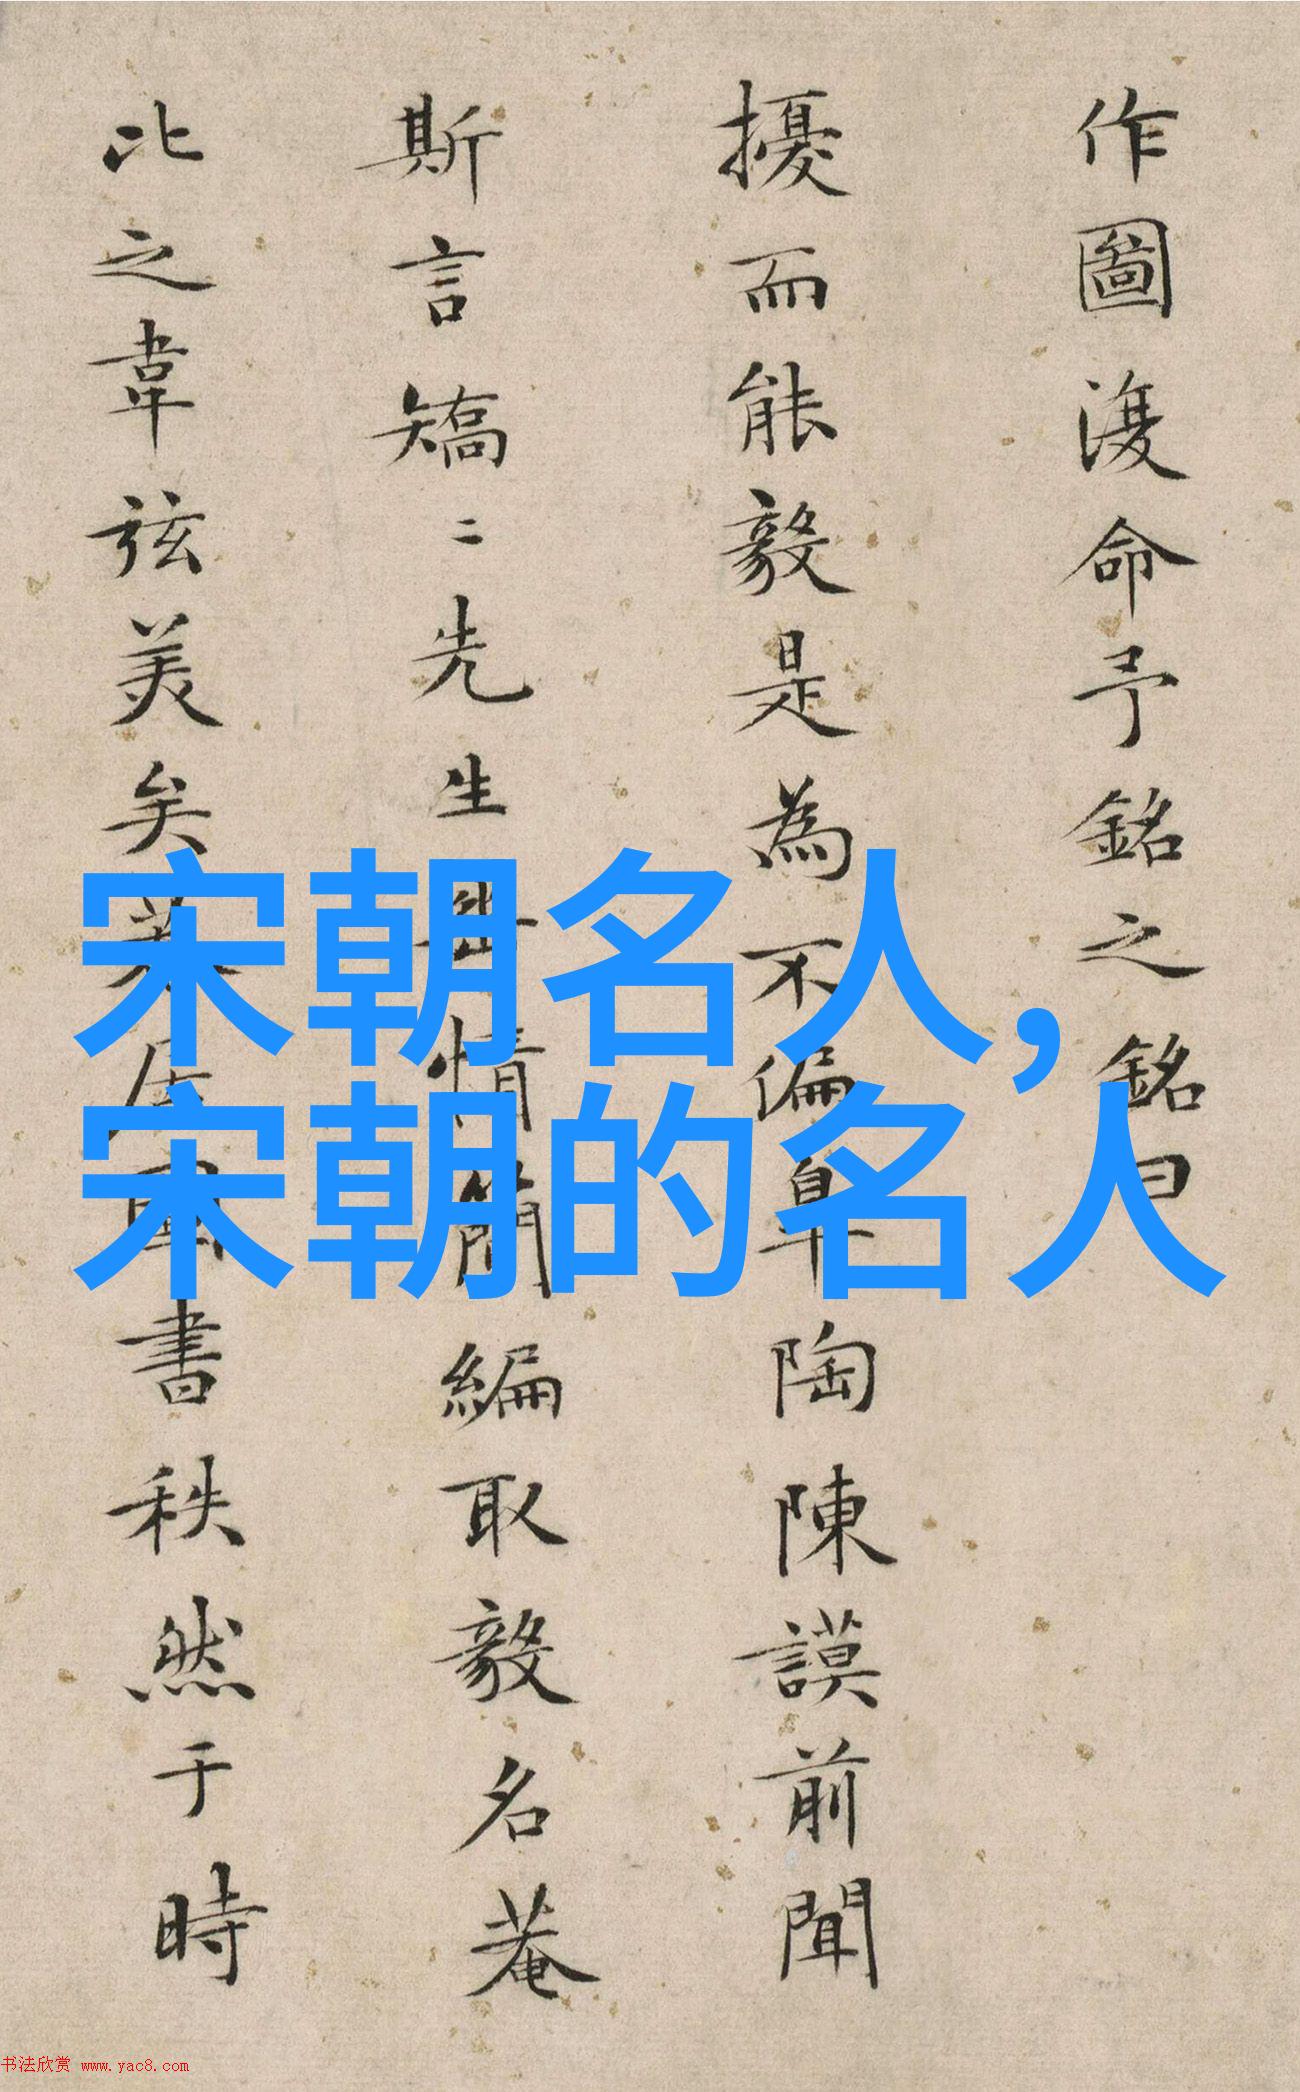 作圖復命予銘之銘曰
擾而能毅是為不偏皐陶陳謨前聞
斯言矯二先生情簡編取毅名菴
比之韋弦美矣居圖書秩然于時
宋朝名人，
宋朝的名人
书法欣赏 www.yac8.com